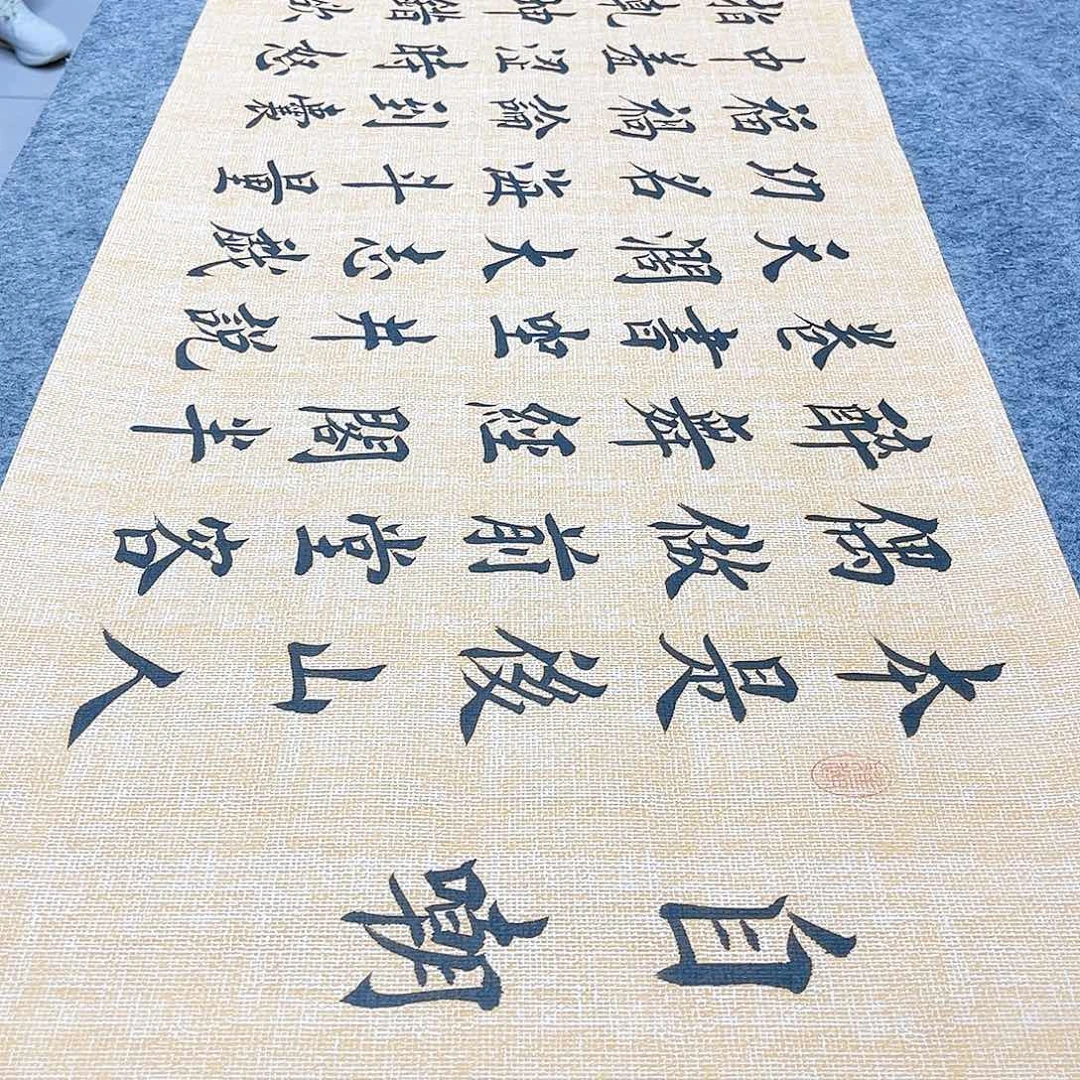 自嘲
本是後山人
偶做前堂客
醉舞經閣半
卷書坐井説
天闊大志戲
功名海斗量
福禍論到囊
中羞澀時怒
指乾坤錯